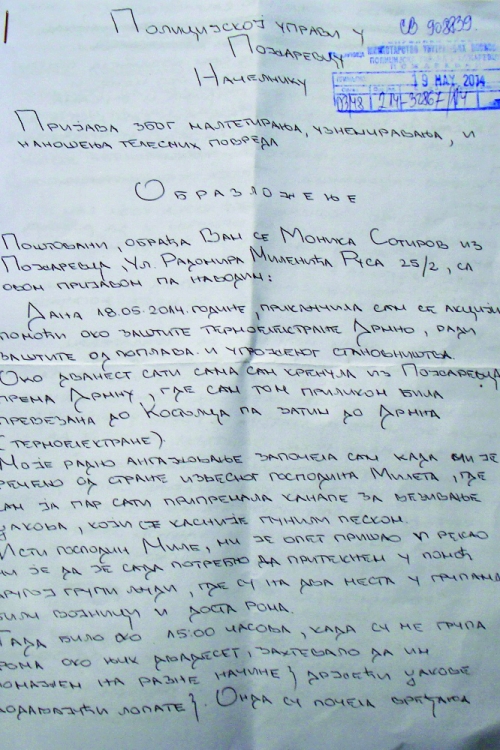 Полицијској управи у
Пожаревцу
Начелнику
СВ 908839.
19 MAY 2014
03/48 214-32867/14
Пријава због малтетирања, узнемиравања, и
наношења телесних повреда
Образложење
Поштовани, обраћа Вам се Моника Сотиров из
Пожаревца, Ул. Радомира Миленића Руса 25/2, са
овом пријавом па наводим:
Дана 18.05.2014. године, прикључила сам се акцији
помоћи око заштите термоелектране Дрмно, ради
заштите од поплава. и угроженог становништва.
Око дванест сати сама сам кренула из Пожаревца
према Дрмну, где сам том приликом била
превезана до Костолца па затим до Дрмна
(термоелектране)
Моје радно ангажовање започела сам када ми је
речено од стране извесног господина Милета, где
сам за пар сати припремала канапе за везивање
џакова, који се касније пунили песком.
Исти господин Миле, ми је опет пришао и рекао
ми је да је сада потребно да притекнем у помоћ
другој групи људи, где су на два места у групама
били војници и доста рома.
Тада било око 15:00 часова, када су ме група
рома око њих двадесет, захтевало да им
помажем на разне начине } држећи џакове
додавајући лопате }. Онда су почела вређања